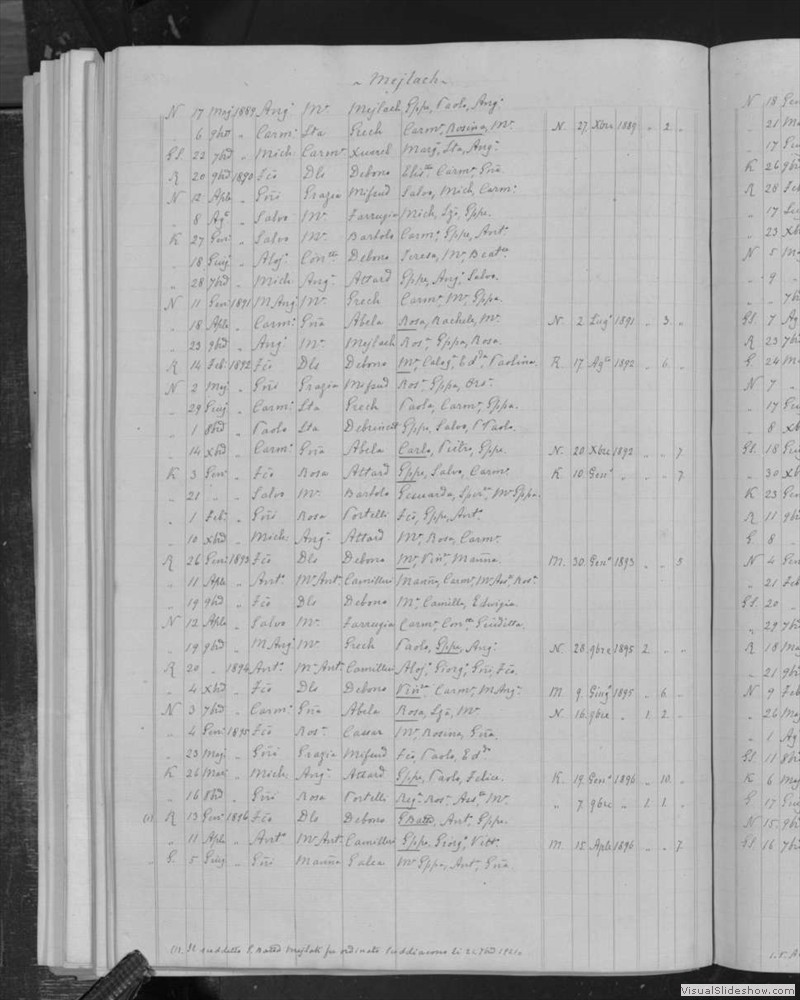 ~ Mejlach ~
N 17 Maj 1889 Angº Mª Mejlach Gppe, Paolo, Angº
„ 6 9bd „ Carmº Sta Grech Carmª, Rosina, Mª N. 27. Xbre 1889 „ 2 „
GS. 22 7bd „ Mich. Carmª Xuereb Margª, Sta, Angª
R 20 9bd 1890 Fco Dls Debono Elisth Carmª, Gña
N 12 Aple „ Gñi Grazia Mifsud Salvo, Mich, Carmº
„ 8 Agº „ Salvo Mª Farrugia Mich, Lgi, Gppe
K 27 Genº „ Salvo Mª Bartolo Carmª, Gppe, Antº
„ 18 Giug „ Aloj. Concta Debono Teresa, Mª, Beatce
„ 28 7bd „ Mich. Angª Attard Gppe, Angº, Salvo
N 11 Gen 1891 M. Angº Mª Grech Carmª, Mª, Gppa
„ 18 Aple „ Carmº Gña Abela Rosa, Rachele, Mª N. 2. Lug 1891 „ 3. „
„ 23 9bd „ Angº Mª Mejlach Rosº, Gppa, Rosa
R 14 Feb. 1892 Fco Dls Debono Mª, Calogª, Paolina R. 17. Agto 1892 „ 6. „
N 2 Maj „ Gñi Grazia Mifsud Rosº, Gppa,
„ 29 Giug „ Carmº Sta Grech Paola, Carmª, Gppa
„ 1 8bd „ Paolo Sta Debrincat Gppe, Salvo, P. Paolo
„ 14 Xbd „ Carmº Gña Abela Carlo, Pietro, Gppe N. 20. Xbre 1892 „ „ 7.
K 3 Genº „ Fco Rosa Attard Gppe, Salvo, Carmº K. 10. Genº „ „ „ 7.
„ 21 „ „ Salvo Mª Bartolo Gesuarda, Mª Gppa
„ 1 Feb. „ Gñi Rosa Portelli Fco, Gppe, Antº
„ 10 Xbd „ Mich. Angª Attard Mª, Rosa, Carmª
R 26 Gen 1893 Fco Dls Debono Mª, Vinª, Mariña M. 30. Genº 1893 „ „ 5
„ 11 Aple „ Antº Mª Antª Camilleri Mariña, Carmª, Mª Assª Rosª
„ 19 9bd „ Fco Dls Debono Mª, Camilla, Edvigia
N 12 Aple „ Salvo Mª Farrugia Carmª, Concta Giuditta
„ 19 9bd „ M. Angº Mª Grech Paolo, Gppe, Angº N. 28. 9bre 1895 2. „ „
R 20 „ 1894 Antº Mª Antª Camilleri Alojº, Giorgº, Gñi, Fco
„ 4 Xbd „ Fco Dls Debono Vinza Carmª, M. Angª M. 9. Giug 1895 „ 6. „
N 3 7bd „ Carmº Gña Abela Rosa, Lga, Mª N. 16. 9bre „ 1. 2. „
„ 4 Gen 1895 Fco Rosª Cassar Mª, Rosina, Gña
„ 23 Maj „ Gñi Grazia Mifsud Fco, Paolo, Eddo
K 26 Mar „ Mich. Angª Attard Gppe, Paolo, Felice K. 19. Genº 1896 „ 10. „
„ 16 8bd „ Gñi Rosa Portelli Regª Rosª, Assta Mª „ 7. 9bre „ 1. 1. „
(1) R 13 Gen 1896 Fco Dls Debono G. Batta, Antº, Gppe
„ 11 Aple „ Antº Mª Antª Camilleri Gppe, Giorgº, Vitt. M. 15. Aple 1896 „ „ 7.
G. 5 Giug „ Gñi Mariña Galea Mª Gppa, Antª, Gña
(1). Il suddetto G. Batta Mejlak fu ordinato Suddiacono li 7bd 1921.
N 18 Gen
„ 21 Ma
„ 17 Giu
K 26 9b
R 28 Feb
„ 17
„ 23 Xb
N 5 Ma
„ 9 „
„ „ 7b
GS. 7 Ag
R 23 7b
G. 24 Ma
N 7 „
„ 17 Giu
„ 8 Xb
GS. 18 Giu
„ 30 Xb
K 23 Gen
R 11 9b
G 8 „
N 4 Gen
„ 21 Feb
GS. 20 „
„ 29 7b
R 18 Ma
„ 21 9b
N 9 Feb
„ 26 Maj
„ 1 Ag
GS. 11 8b
K 6 Maj
G 17 Giug
N 15 9b
GS. 16 7b
VisualSlideshow.com